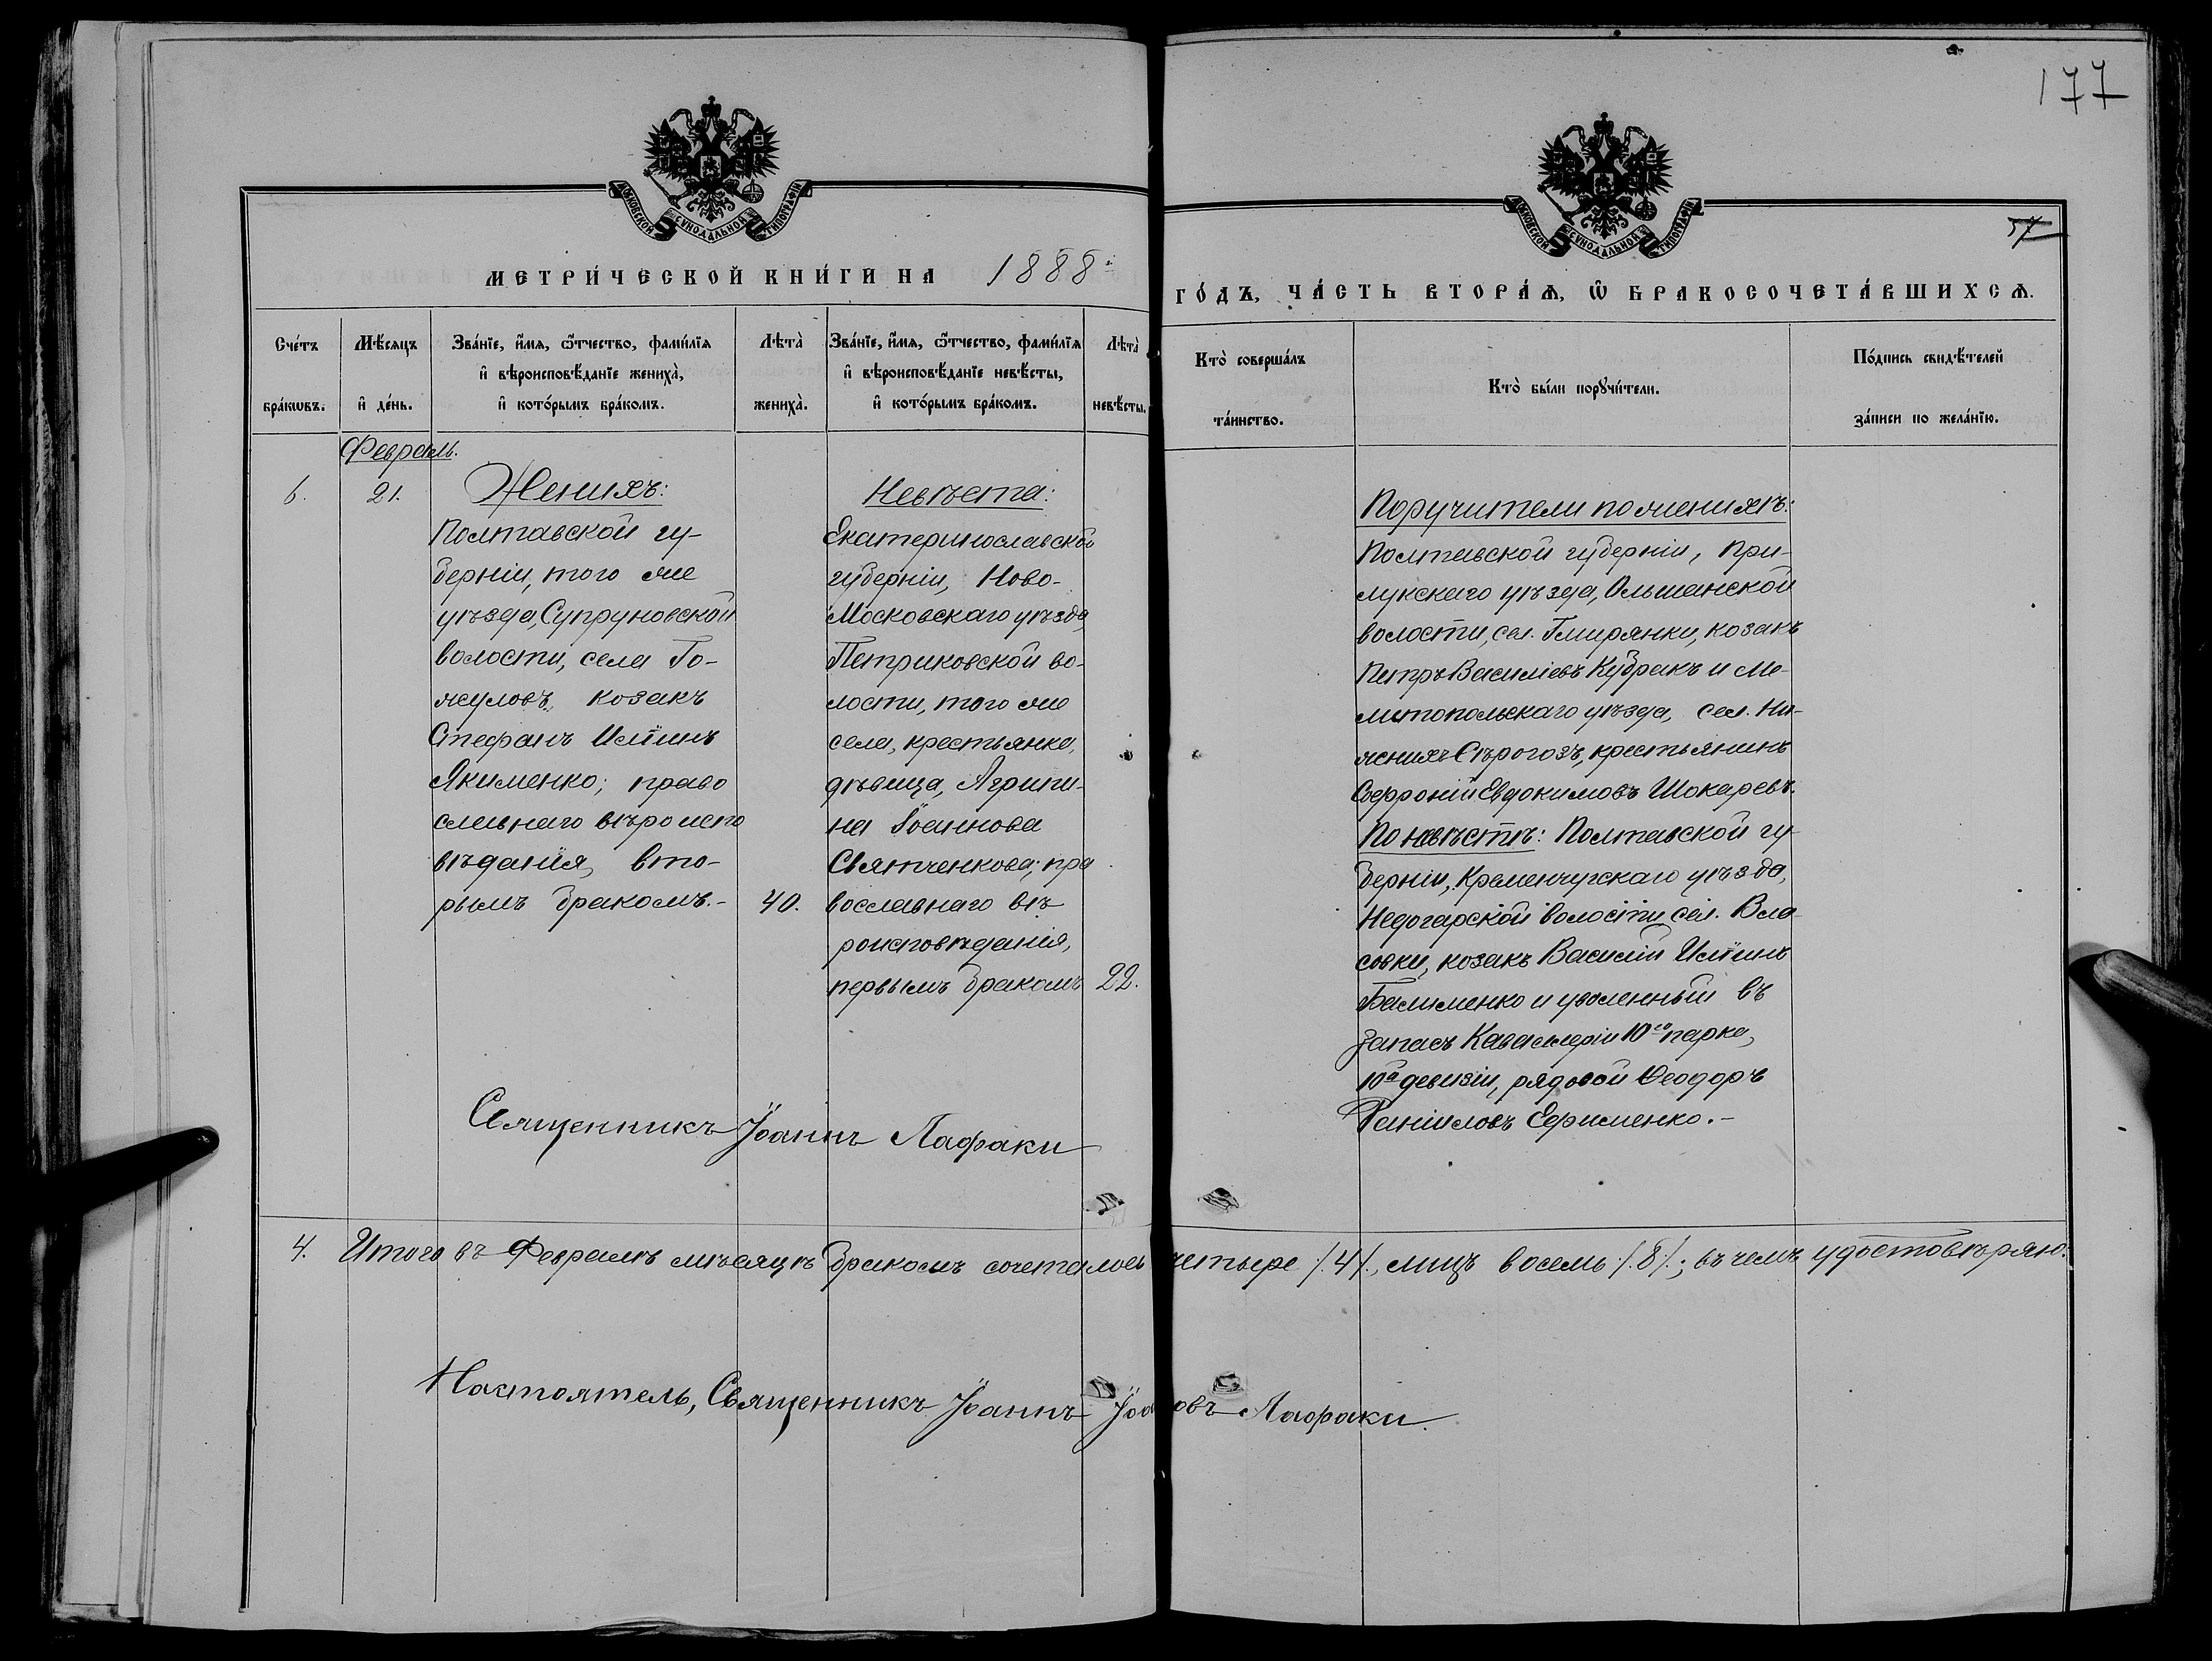 177
57
МОСКОВСКОЙ СѴНОДАЛЬНОЙ ТИПОГРАФІИ
МОСКОВСКОЙ СѴНОДАЛЬНОЙ ТИПОГРАФІИ
МЕТРИ́ЧЕСКОЙ КНИ́ГИ НА 1888 ГО́ДЪ, ЧА́СТЬ ВТОРА́Ѧ, Ѽ БРАКОСОЧЕТА́ВШИХСѦ.
Сче́тъ бра́кѡвъ.
Мѣ́сяцъ и҆ де́нь.
Зва́нїе, и҆́мя, ѻ҆́тчество, фами́лїя
и҆ вѣроисповѣ́данїе жениха̀,
и҆ кото́рымъ бра́комъ.
Лѣта̀ жениха̀.
Зва́нїе, и҆́мя, ѻ҆́тчество, фами́лїя
и҆ вѣроисповѣ́данїе невѣ́сты,
и҆ кото́рымъ бра́комъ.
Лѣта̀ невѣ́сты.
Кто̀ соверша́лъ та́инство.
Кто̀ бы́ли порꙋчи́тели.
По́дпись свидѣ́телей за́писи по жела́нїю.
Февраль.
6.
21.
Женихъ:
Полтавской гу-
берніи, того же
уѣзда, Супруновской
волости, села Го-
жуловъ, козакъ
Стефанъ Ильинъ
Якименко; право
славнаго вѣроиспо
вѣданія, вто-
рымъ бракомъ.-
40.
Невѣста:
Екатеринославской
губерніи, Ново-
Московскаго уѣзда,
Петриковской во-
лости, того же
села, крестьянка,
дѣвица, Агрипи-
на Іоаннова
Святченкова; пра
вославнаго вѣ
роисповѣданія,
первымъ бракомъ
22.
Поручители по женихѣ:
Полтавской губерніи, При-
лукскаго уѣзда, Ольшанской
волости, сел. Гмирянки, козакъ
Петръ Василіевъ Кубракъ и Ме-
литопольскаго уѣзда, сел. Ни-
жнихъ Сѣрогозъ, крестьянинъ
Софроній Евдокимовъ Шокаревъ.
По невѣстѣ: Полтавской гу-
берніи, Кременчугскаго уѣзда,
Недогарской волости сел. Вла
совки, козакъ Василій Ильинъ
Балименко и уволенный въ
запасъ Кавалеріи 10го парка,
10й девизіи, рядовой Ѳеодоръ
Даніиловъ Ефименко.-
Священникъ Іоаннъ Лафаки
4. Итого въ Февралѣ мѣсяцѣ бракомъ сочеталось четыре /.4/., лицъ восемь /.8/.; въ чемъ удостовѣряю.
Настоятель, Священникъ Іоаннъ Лафаки.